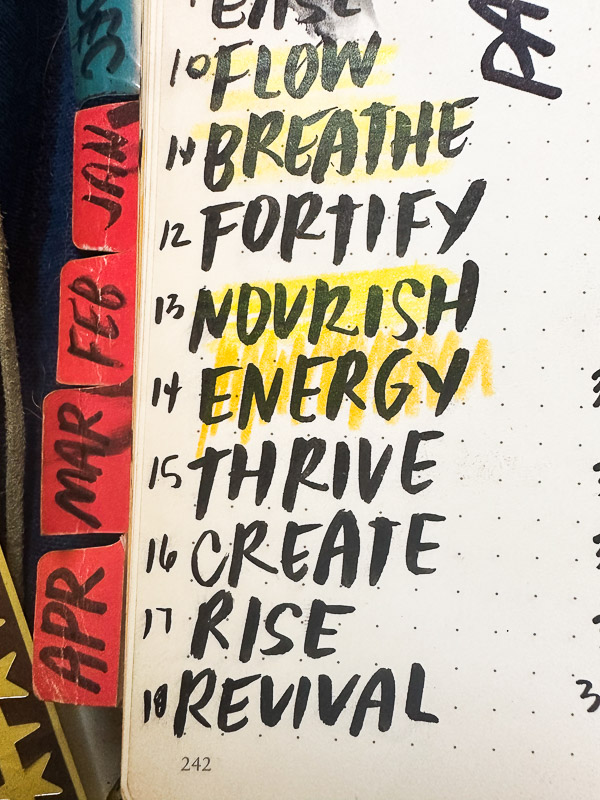 EASE
10 FLOW
11 BREATHE
12 FORTIFY
13 NOURISH
14 ENERGY
15 THRIVE
16 CREATE
17 RISE
18 REVIVAL
242
PA
JAN
FEB
MAR
APR